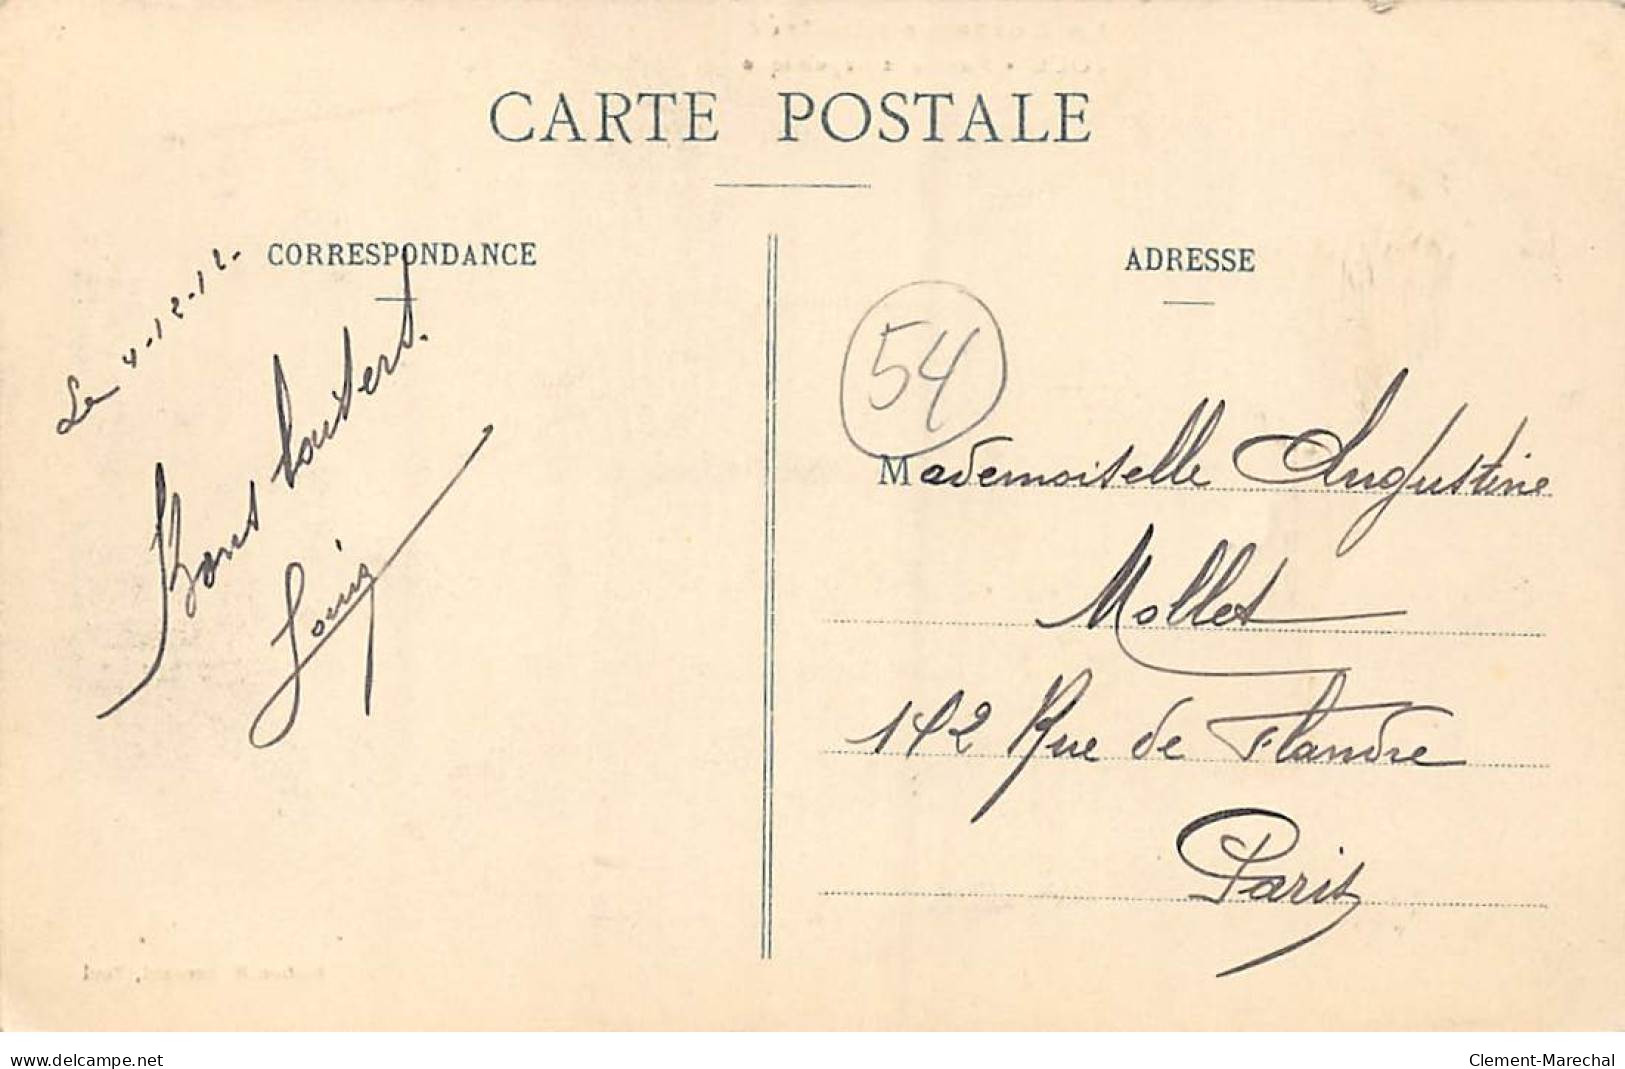 CARTE POSTALE
CORRESPONDANCE
ADRESSE
Le 4-12-12-
Bons baisers.
Louis
54
Mademoiselle Augustine
Mollet
142 Rue de Flandre
Paris
www.delcampe.net
Clement-Marechal